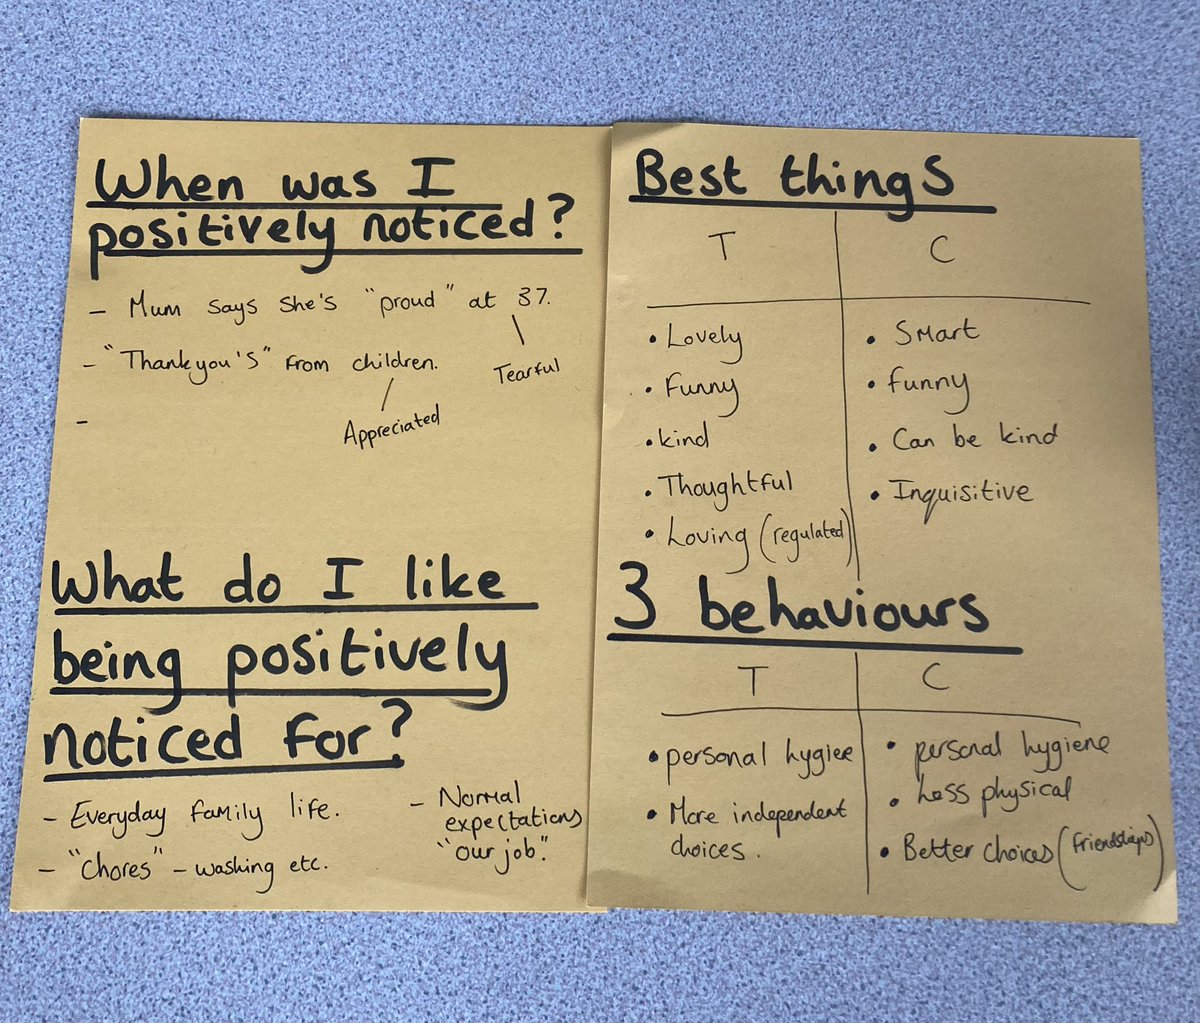 When was I
positively noticed?
- Mum says she's "proud" at 37.
Tearful
- "Thankyou's" from children.
Appreciated
-
What do I like
being positively
noticed for?
- Everyday family life.
- "Chores" - washing etc.
- Normal
expectations
"our job."
Best things
T
• Lovely
• Funny
• kind
• Thoughtful
• Loving (regulated)
C
• Smart
• funny
• Can be kind
• Inquisitive
3 behaviours
T
• personal hygiee
• More independent
choices.
C
• personal hygiene
• Less physical
• Better choices (friendships)